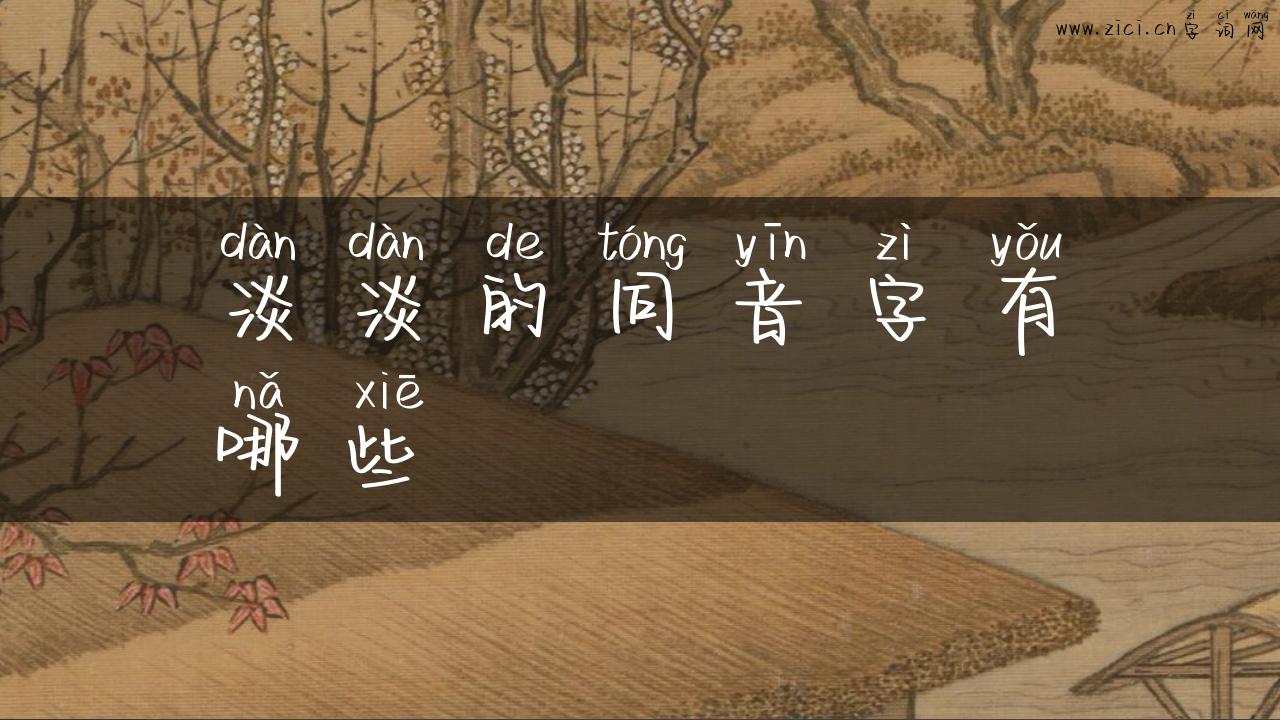 zì cí wǎng
www.zici.cn字词网
dàn dàn de tóng yīn zì yǒu
淡淡的同音字有
nǎ xiē
哪些